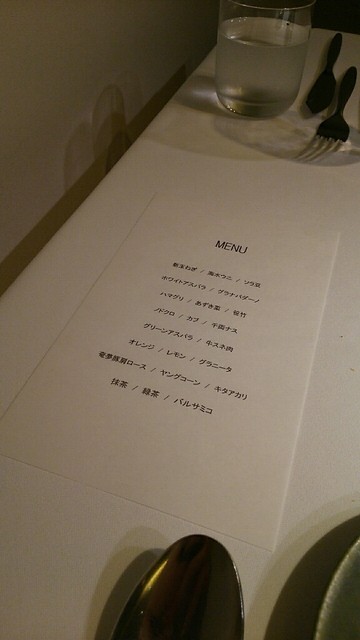 MENU
新玉ねぎ / 海水ウニ / ソラ豆
ホワイトアスパラ / グラナパダーノ
ハマグリ / あずき菜 / 筍竹
ノドクロ / カブ / 千両ナス
グリーンアスパラ / 牛スネ肉
オレンジ / レモン / グラニータ
奄夢豚肩ロース / ヤングコーン / キタアカリ
抹茶 / 緑茶 / バルサミコ